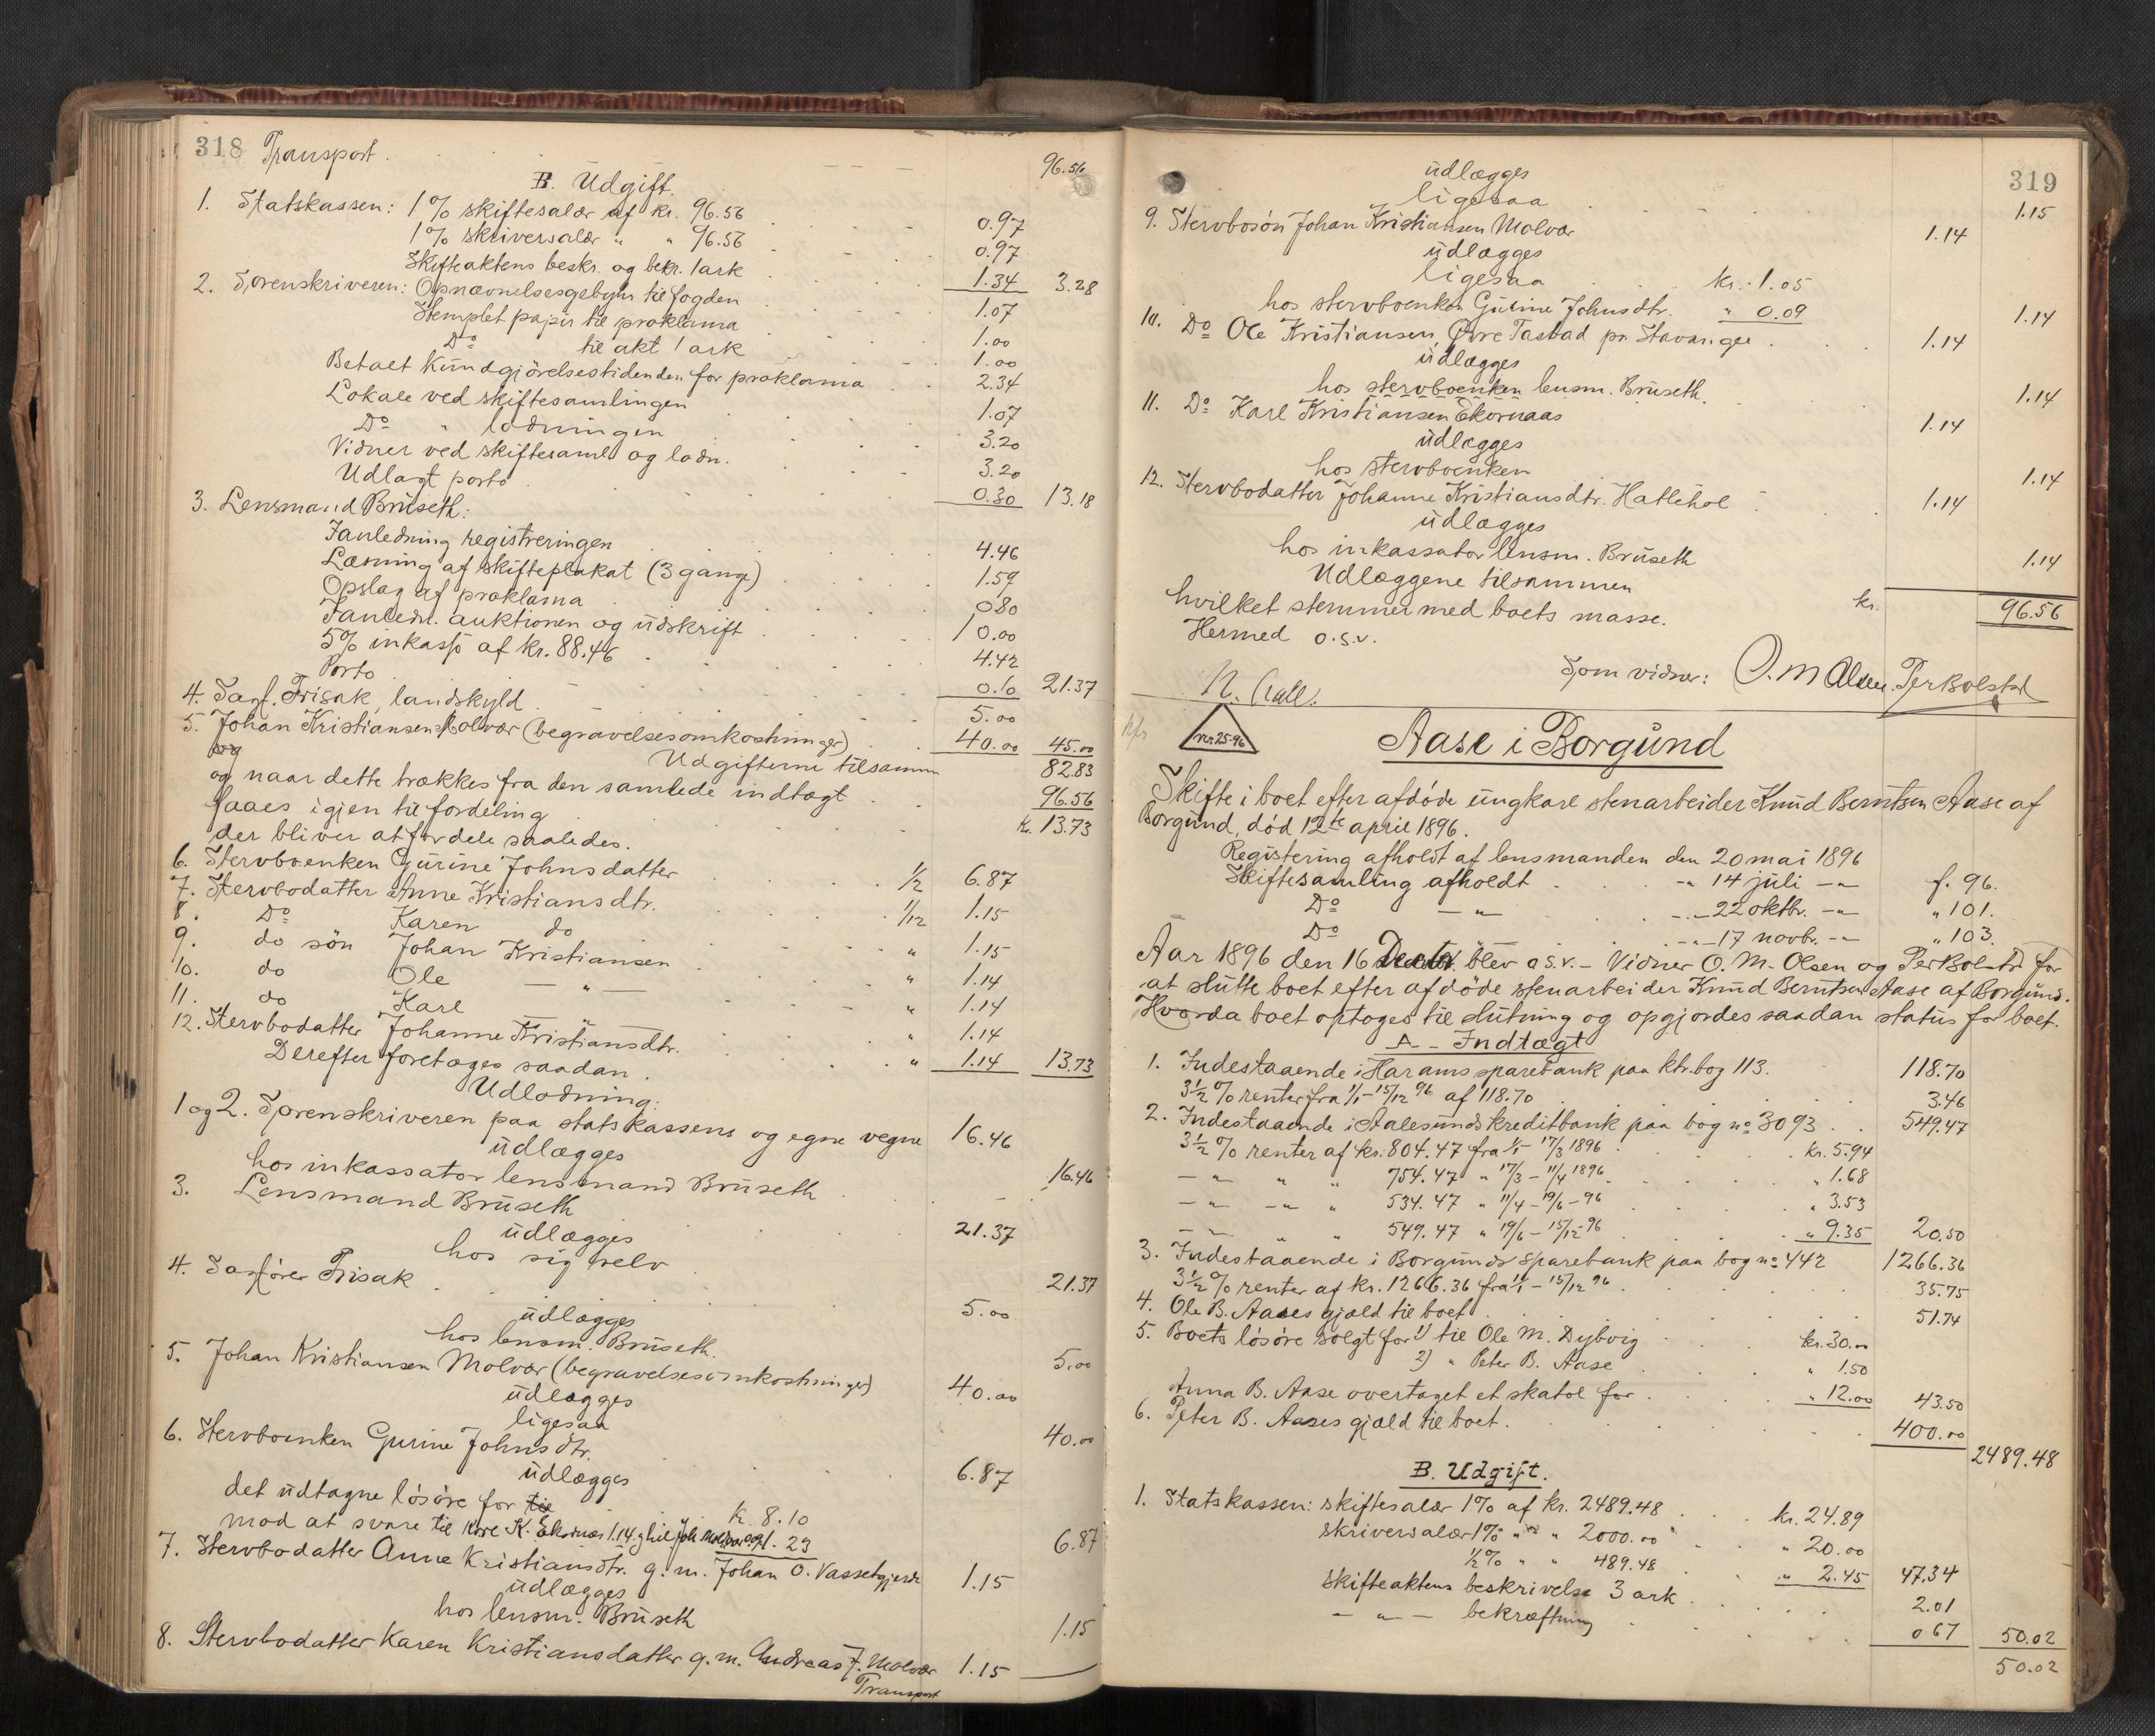 318 Transport. 96.56
B. Udgift.
1. Statskassen: 1% skiftesalær af kr. 96.56 0.97
1% skriversalær " " 96.56 0.97
Skifteaktens beskr. og bekr. 1 ark 1.34 3.28
2. Sorenskriveren: Opnævnelsesgebyhr til fogden 1.07
Stemplet papir til proklama 1.00
Do til akt 1 ark 1.00
Betalt Kundgjörelsestidenden for proklama 2.34
Lokale ved skiftesamlingen 1.07
Do " lodningen 3.20
Vidner ved skiftesaml. og lodn. 3.20
Udlagt porto 0.30 13.18
3. Lensmand Bruseth:
I anledning registreringen 4.46
Læsning af skifteplakat (3 gange) 1.59
Opslag af proklama 0 80
I anledn. auktionen og udskrift 10.00
5% inkasso af kr. 88.46 4.42
Porto 0.10 21.37
4. Sagf. Frisak, landskyld 5.00
5. Johan Kristiansen Molvær (begravelsesomkostninger) 40.00 45.00
og Udgifterne tilsammen 82.83
og naar dette trækkes fra den samlede indtægt 96.56
faaes igjen til fordeling kr. 13.73
der bliver at fordele saaledes.
6. Stervboenken Gurine Johnsdatter 1/2 6.87
7. Stervbodatter Anne Kristiansdtr. 1/12 1.15
8. Do Karen do " 1.15
9. do sön Johan Kristiansen " 1.14
10. do Ole — " — " 1.14
11. do Karl — " — " 1.14
12. Stervbodatter Johanne Kristiansdtr. " 1.14 13.73
Derefter foretoges saadan
Udlodning:
1 og 2. Sorenskriveren paa statskassens og egne vegne 16.46
udlægges
hos inkassator lensmand Bruseth 16.46
3. Lensmand Bruseth 21.37
udlægges
hos sig selv 21.37
4. Sagförer Frisak 5.00
udlægges
hos lensm. Bruseth. 5.00
5. Johan Kristiansen Molvær (begravelsesomkostninger) 40.00
udlægges
ligesaa 40.00
6. Stervboenken Gurine Johnsdtr. 6.87
udlægges
det udtagne lösöre for til kr. 8.10
mod at svare til Karl K. Ekornæs 1.14 og til Joh. Molvær 0.09 1.23 6.87
7. Stervbodatter Anne Kristiansdtr. g. m. Johan O. Vassetgjerde 1.15
udlægges
hos lensm. Bruseth 1.15
8. Stervbodatter Karen Kristiansdatter g. m. Andreas J. Molvær 1.15
Transport
319
udlægges
ligesaa 1.15
9. Stervbosön Johan Kristiansen Molvær 1.14
udlægges
ligesaa kr. 1.05
hos stervboenken Gurine Johnsdtr. " 0.09 1.14
10. Do Ole Kristiansen, Övre Tastad pr. Stavanger 1.14
udlægges
hos stervboenken lensm. Bruseth. 1.14
11. Do Karl Kristiansen Ekornaas 1.14
udlægges
hos stervboenken 1.14
12. Stervbodatter Johanne Kristiansdtr. Hatlehol 1.14
udlægges
hos inkassator lensm. Bruseth 1.14
Udlæggene tilsammen kr. 96.56
hvilket stemmer med boets masse.
Hermed o.s.v.
Som vidner: O. M. Olsen. Per Bolstad
N. Krall.
nr. 25-96
Aase i Borgund
Skifte i boet efter afdöde ungkarl stenarbeider Knud Berntsen Aase af
Borgund, död 12te april 1896.
Registering afholdt af lensmanden den 20 mai 1896
Skiftesamling afholdt -"- 14 juli -"- f. 96.
Do -"- -"- 22 oktbr. -"- " 101.
Do -"- -"- 17 novb. -"- " 103.
Aar 1896 den 16 Decbr. blev o.s.v. - Vidner O. M. Olsen og Per Bolstad for
at slutte boet efter afdöde stenarbeider Knud Berntsen Aase af Borgund.
Hvorda boet optoges til slutning og opgjordes saadan status for boet.
A - Indtægt
1. Indestaaende i Harams sparebank paa ktr. bog 113. 118.70
3½ % renter fra 1/1 - 15/12 96 af 118.70 3.46
2. Indestaaende i Aalesunds kreditbank paa bog no 3093 549.47
3½ % renter af kr. 804.47 fra 1/1 - 17/3 1896 kr. 5.94
-"- " " 754.47 " 17/3 - 11/4 1896 " 1.68
-"- -"- " 534.47 " 11/4 - 19/6 - 96 " 3.53
-"- " " 549.47 " 19/6 - 15/12 - 96 " 9.35 20.50
3. Indestaaende i Borgunds sparebank paa bog no 442 1266.36
3½ % renter af kr. 1266.36 fra 1/1 - 15/12 96 35.75
4. Ole B. Aases gjæld til boet 51.74
5. Boets lösöre solgt for 1) til Ole M. Dybvig kr. 30.00
2) " Peter B. Aase " 1.50
Anna B. Aase overtaget et skatol for " 12.00 43.50
6. Peter B. Aases gjæld til boet. 400.00
2489.48
B. Udgift.
1. Statskassen: skiftesalær 1% af kr. 2489.48 kr. 24.89
skriversalær 1% " " 2000.00 " 20.00
½% " " 489.48 " 2.45 47.34
skifteaktens beskrivelse 3 ark 2.01
— " — bekræftning 0 67 50.02
50.02